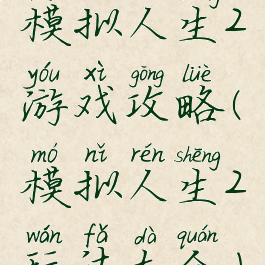 模拟人生2
yóu xì gōng lüè
游戏攻略(
mó nǐ rén shēng
模拟人生2
wán fǎ dà quán